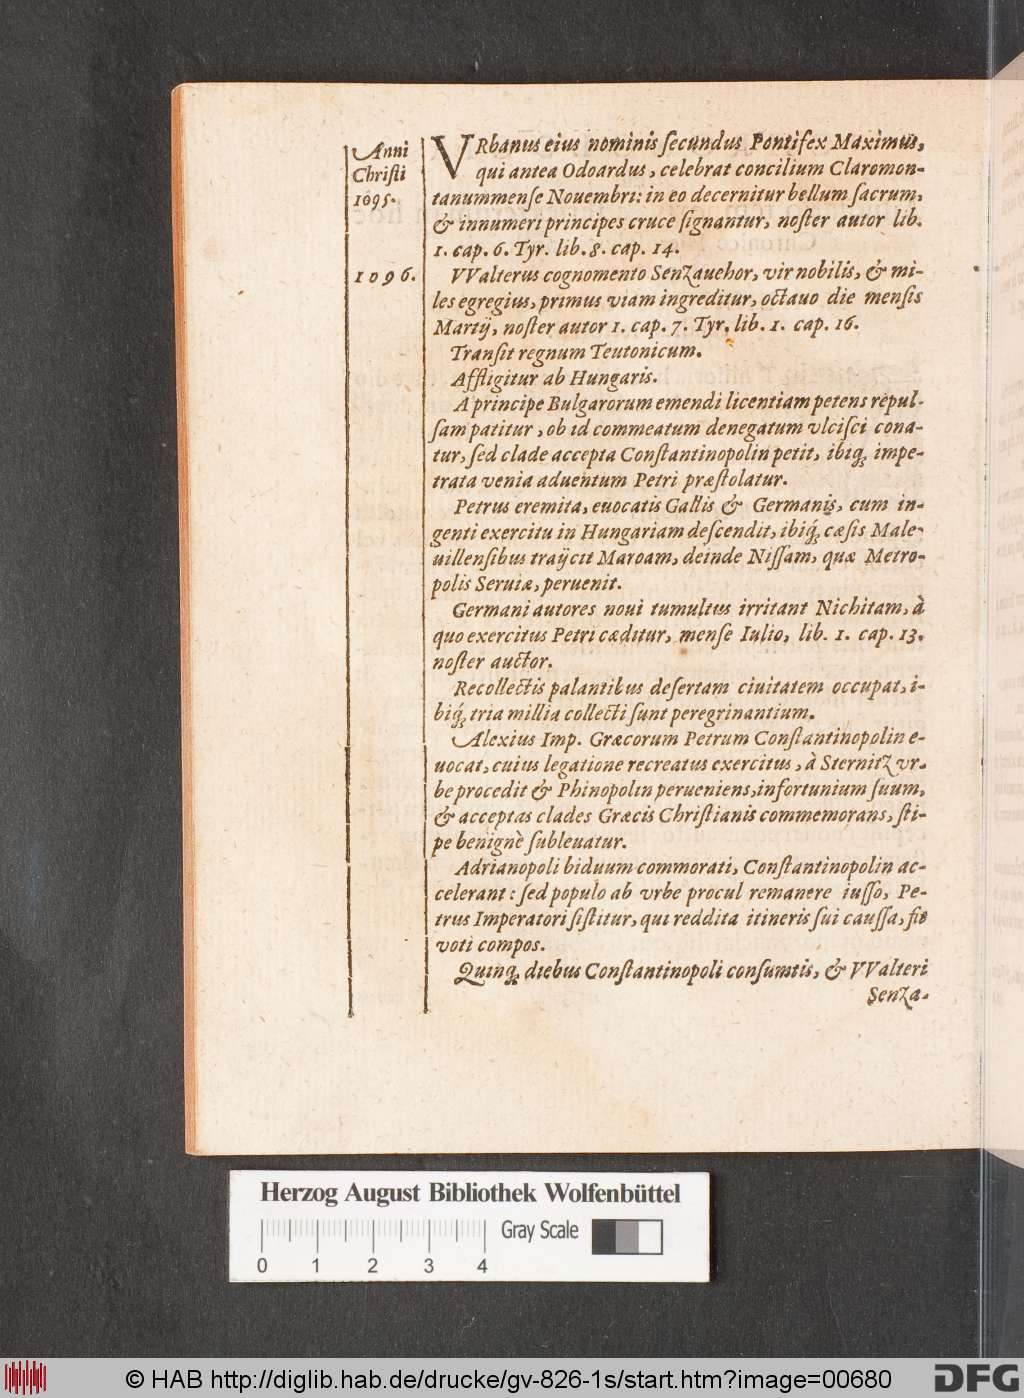 Anni
Christi
1695.
VRbanus eius nominis secundus Pontifex Maximus,
qui antea Odoardus, celebrat concilium Claromon-
tanummense Nouembri: in eo decernitur bellum sacrum,
& innumeri principes cruce signantur, noster autor lib.
1. cap. 6. Tyr. lib. 8. cap. 14.
1096.
VValterus cognomento Senzauehor, vir nobilis, & mi-
les egregius, primus viam ingreditur, octauo die mensis
Martij, noster autor 1. cap. 7. Tyr. lib. 1. cap. 16.
Transit regnum Teutonicum.
Affligitur ab Hungaris.
A principe Bulgarorum emendi licentiam petens repul-
sam patitur, ob id commeatum denegatum vlcisci cona-
tur, sed clade accepta Constantinopolin petit, ibiq; impe-
trata venia aduentum Petri præstolatur.
Petrus eremita, euocatis Gallis & Germanis, cum in-
genti exercitu in Hungariam descendit, ibiq́; cæsis Male-
uillensibus traijcit Maroam, deinde Nissam, quæ Metro-
polis Seruiæ, peruenit.
Germani autores noui tumultus irritant Nichitam, à
quo exercitus Petri cæditur, mense Iulio, lib. 1. cap. 13.
noster auctor.
Recollectis palantibus desertam ciuitatem occupat, i-
biq́; tria millia collecti sunt peregrinantium.
Alexius Imp. Græcorum Petrum Constantinopolin e-
uocat, cuius legatione recreatus exercitus, à Sternitz vr-
be procedit & Phinopolin perueniens, infortunium suum,
& acceptas clades Græcis Christianis commemorans, sti-
pe benignè subleuatur.
Adrianopoli biduum commorati, Constantinopolin ac-
celerant: sed populo ab vrbe procul remanere iusso, Pe-
trus Imperatori sistitur, qui reddita itineris sui caussa, fit
voti compos.
Quinq; diebus Constantinopoli consumtis, & VValteri
Senza-
Herzog August Bibliothek Wolfenbüttel
Gray Scale
0 1 2 3 4
© HAB http://diglib.hab.de/drucke/gv-826-1s/start.htm?image=00680
DFG